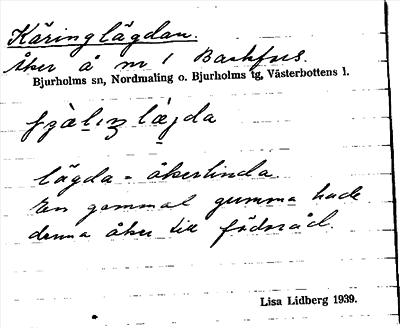 Käringlägdan.
Åker å nr 1 Backfors.
Bjurholms sn, Nordmaling o. Bjurholms tg, Västerbottens l.
lägda = åkerlinda
En gammal gumma hade
denna åker till födoråd.
Lisa Lidberg 1939.